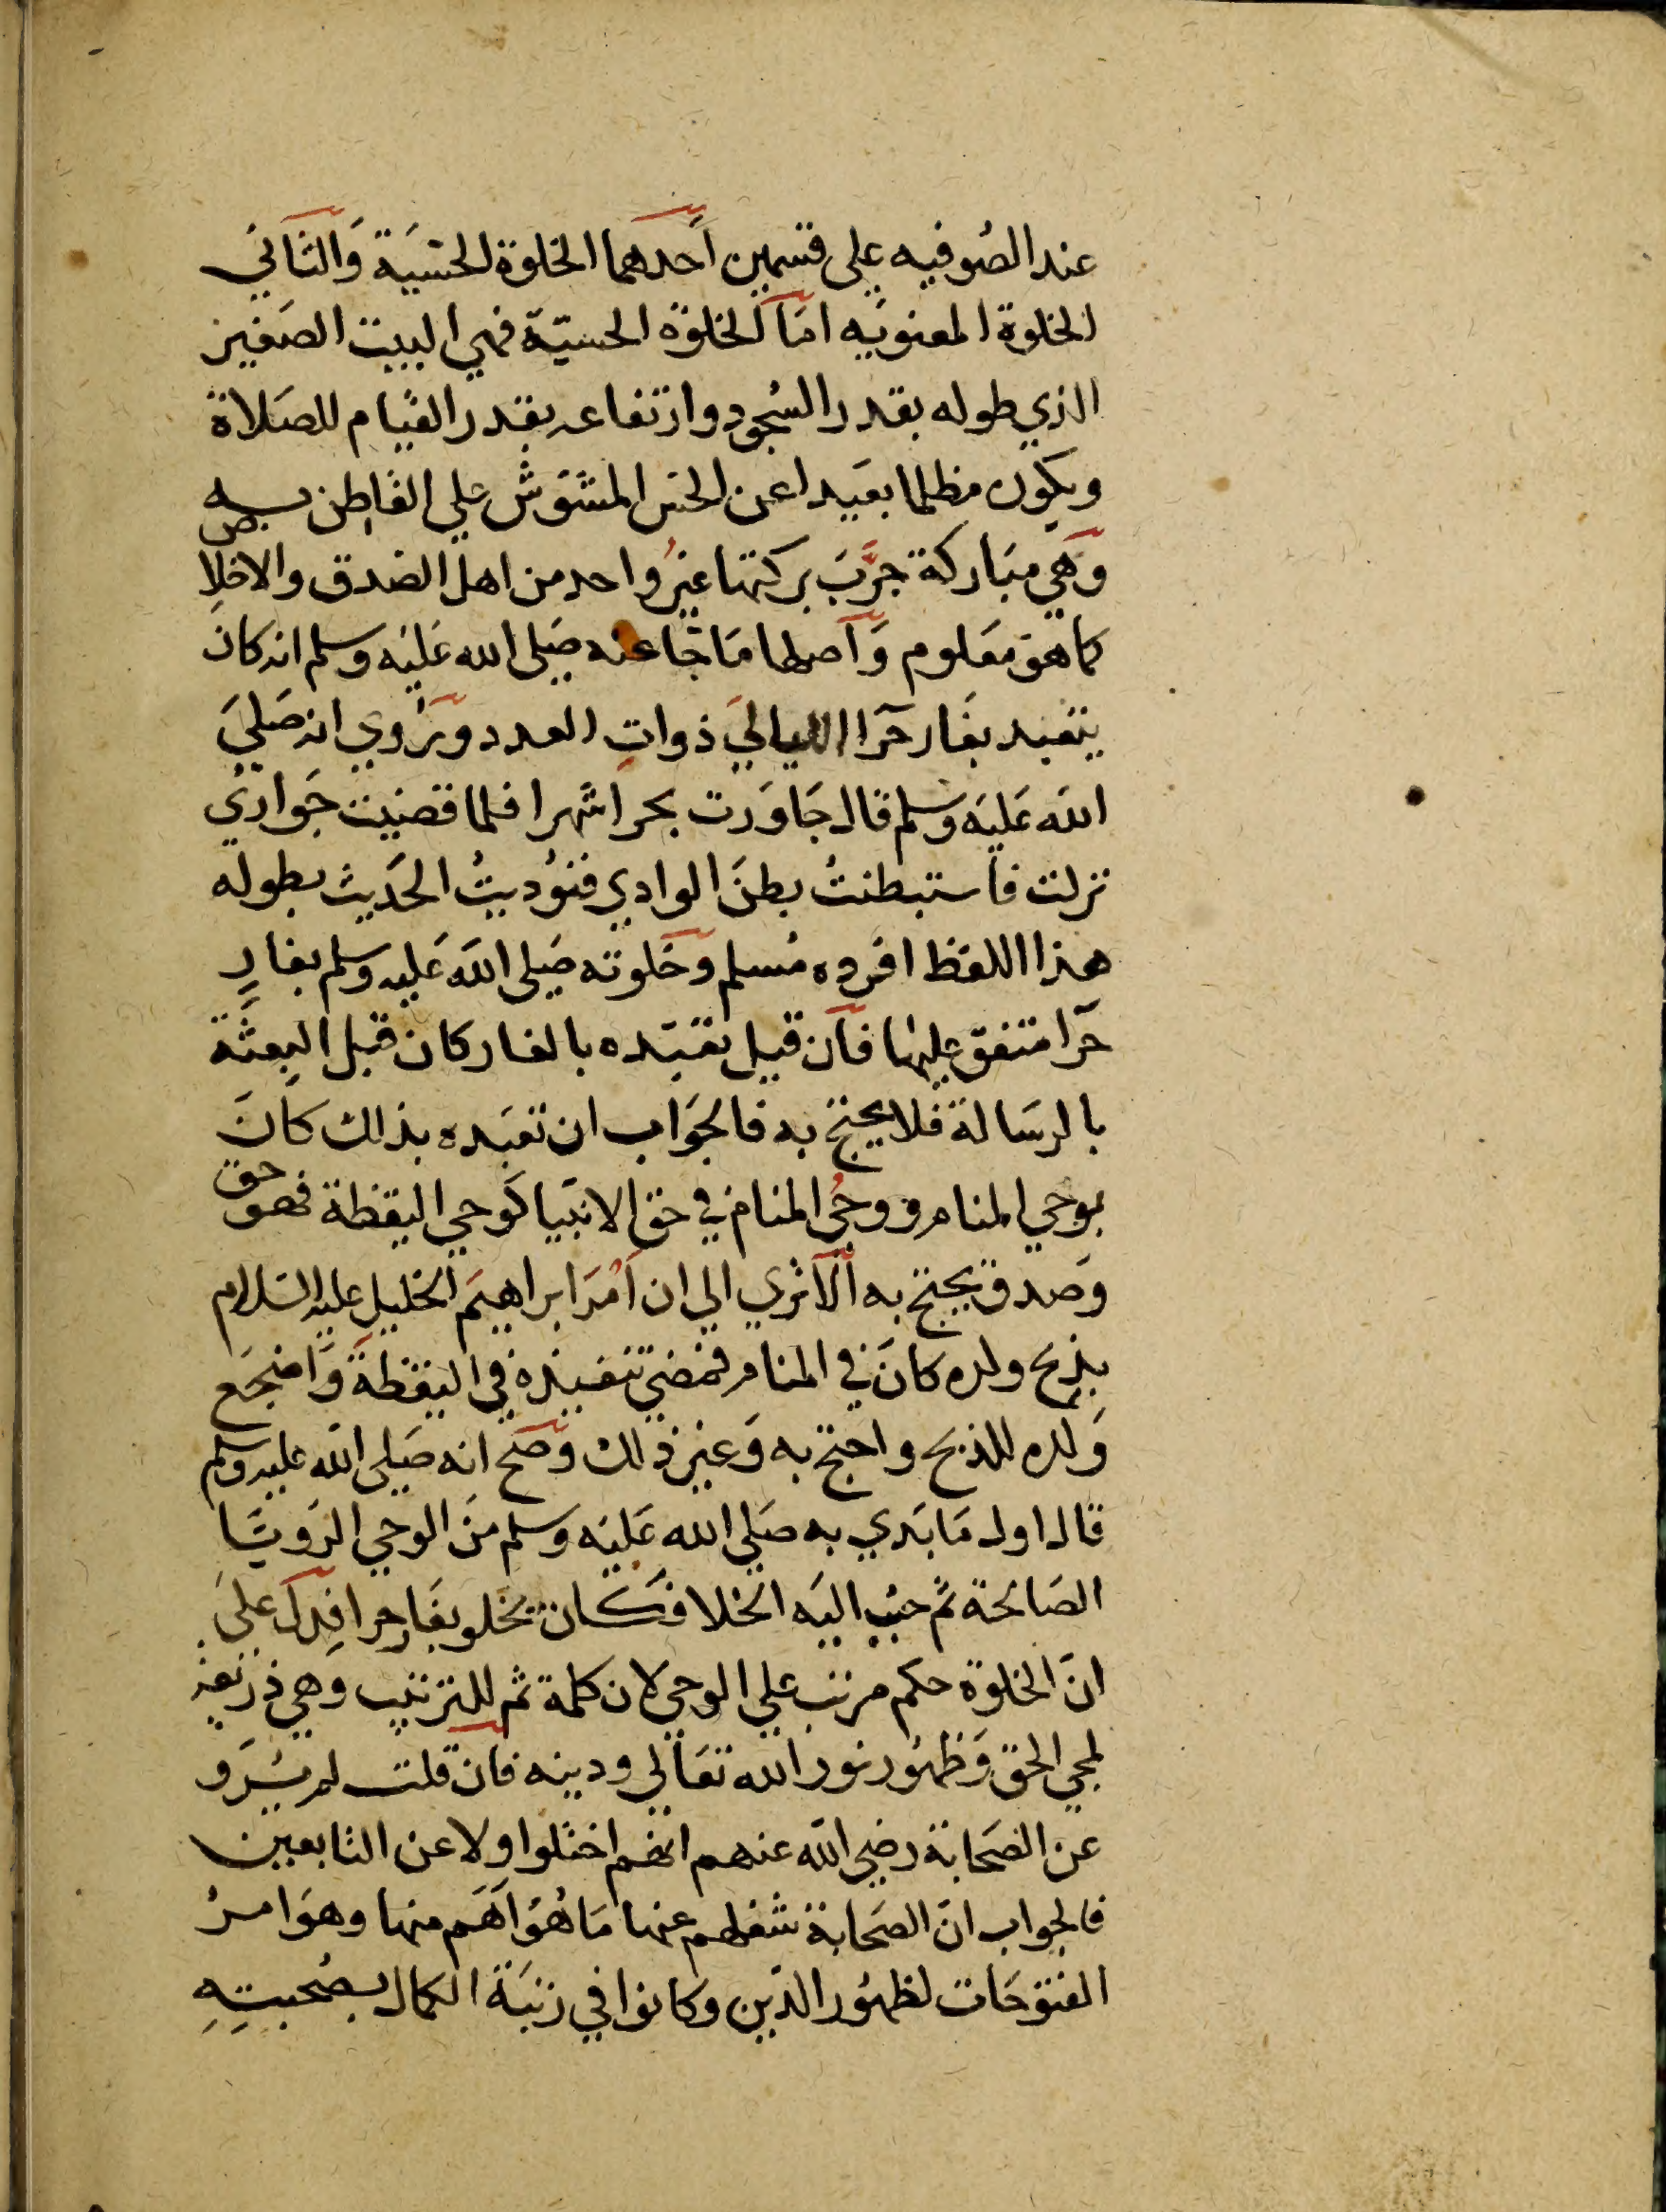 عند الصُوفيه على قسمين احدهما الخلوة الحسّيَة وَالثاني
الخلوة المعنويّه امَا الخلوة الحسيّة فهي البيت الصَغير
الذي طوله بقدر السُجود وارتفاعه بقدر القيام للصَلاة
ويكون مظلما بعَيدا عن الحسّ المشوّش علي القاطن به
وَهي مبَاركة جرَّبَ بركتها غيرُ واحد من اهل الصدق والاخلاص
كما هو معَلوم وَاصلها مَا جَا عنه صَلى الله عَليَه وسلم انه كانَ
يتعَبد بغَار حَرا الليالي ذواتِ العدد ويرُوي انه صَليَ
الله عَليَه وسلم قال جَاوَرت بحرا شهرا فلما قضيت جَواري
نزلت فاستبطنتُ بطنَ الوادي فنوُديتُ الحَديث بطوله
هذا اللفظ افرده مُسلم وخَلوته صَلى الله عَليه وسلم بغارِ
حَرا متفق عليها فان قيل تعَبّده بالغار كان قبل البِعثَة
بالرسَالة فلا يحتج به فالجوَاب ان تعَبَده بذلك كانَ
بوحي المنام ووحيُ المنام في حق الانبيا كَوحي اليقظة فهو حق
وَصدق يحتج به الَا تري الي ان امْرَ ابراهيمَ الخليل عليه السَلام
بذبح ولده كانَ في المنام فمضي تنفيذه في اليقظةَ وَاضجَع
وَلده للذبح واحتج به وَغير ذلك وَصَح انه صَلى الله عليه وسلم
قال اول مَا بَدي به صَلي الله عَليَه وَسلم منَ الوحي الرَويَا
الصَالحة ثم حبُب اليَه الخلا فكان يخلو بغَار حرا فدَل عليَ
انَ الخلوة حكم مرتب علي الوحي لان كلمة ثم للترتيب وهي ذريعَة
لمجي الحق وَظهُور نور الله تعَالي ودينه فان قلت لم يُرَو
عن الصَحابة رضي الله عنهم انهم اختلوا ولا عن التابعين
فالجواب انَ الصَحابة شغلهم عنها مَا هُوَ اَهَم منها وهوَ امرُ
الفتوحَات لظهُور الدَين وَكانوا في رتبَة الكمال بصُحبتِهِ